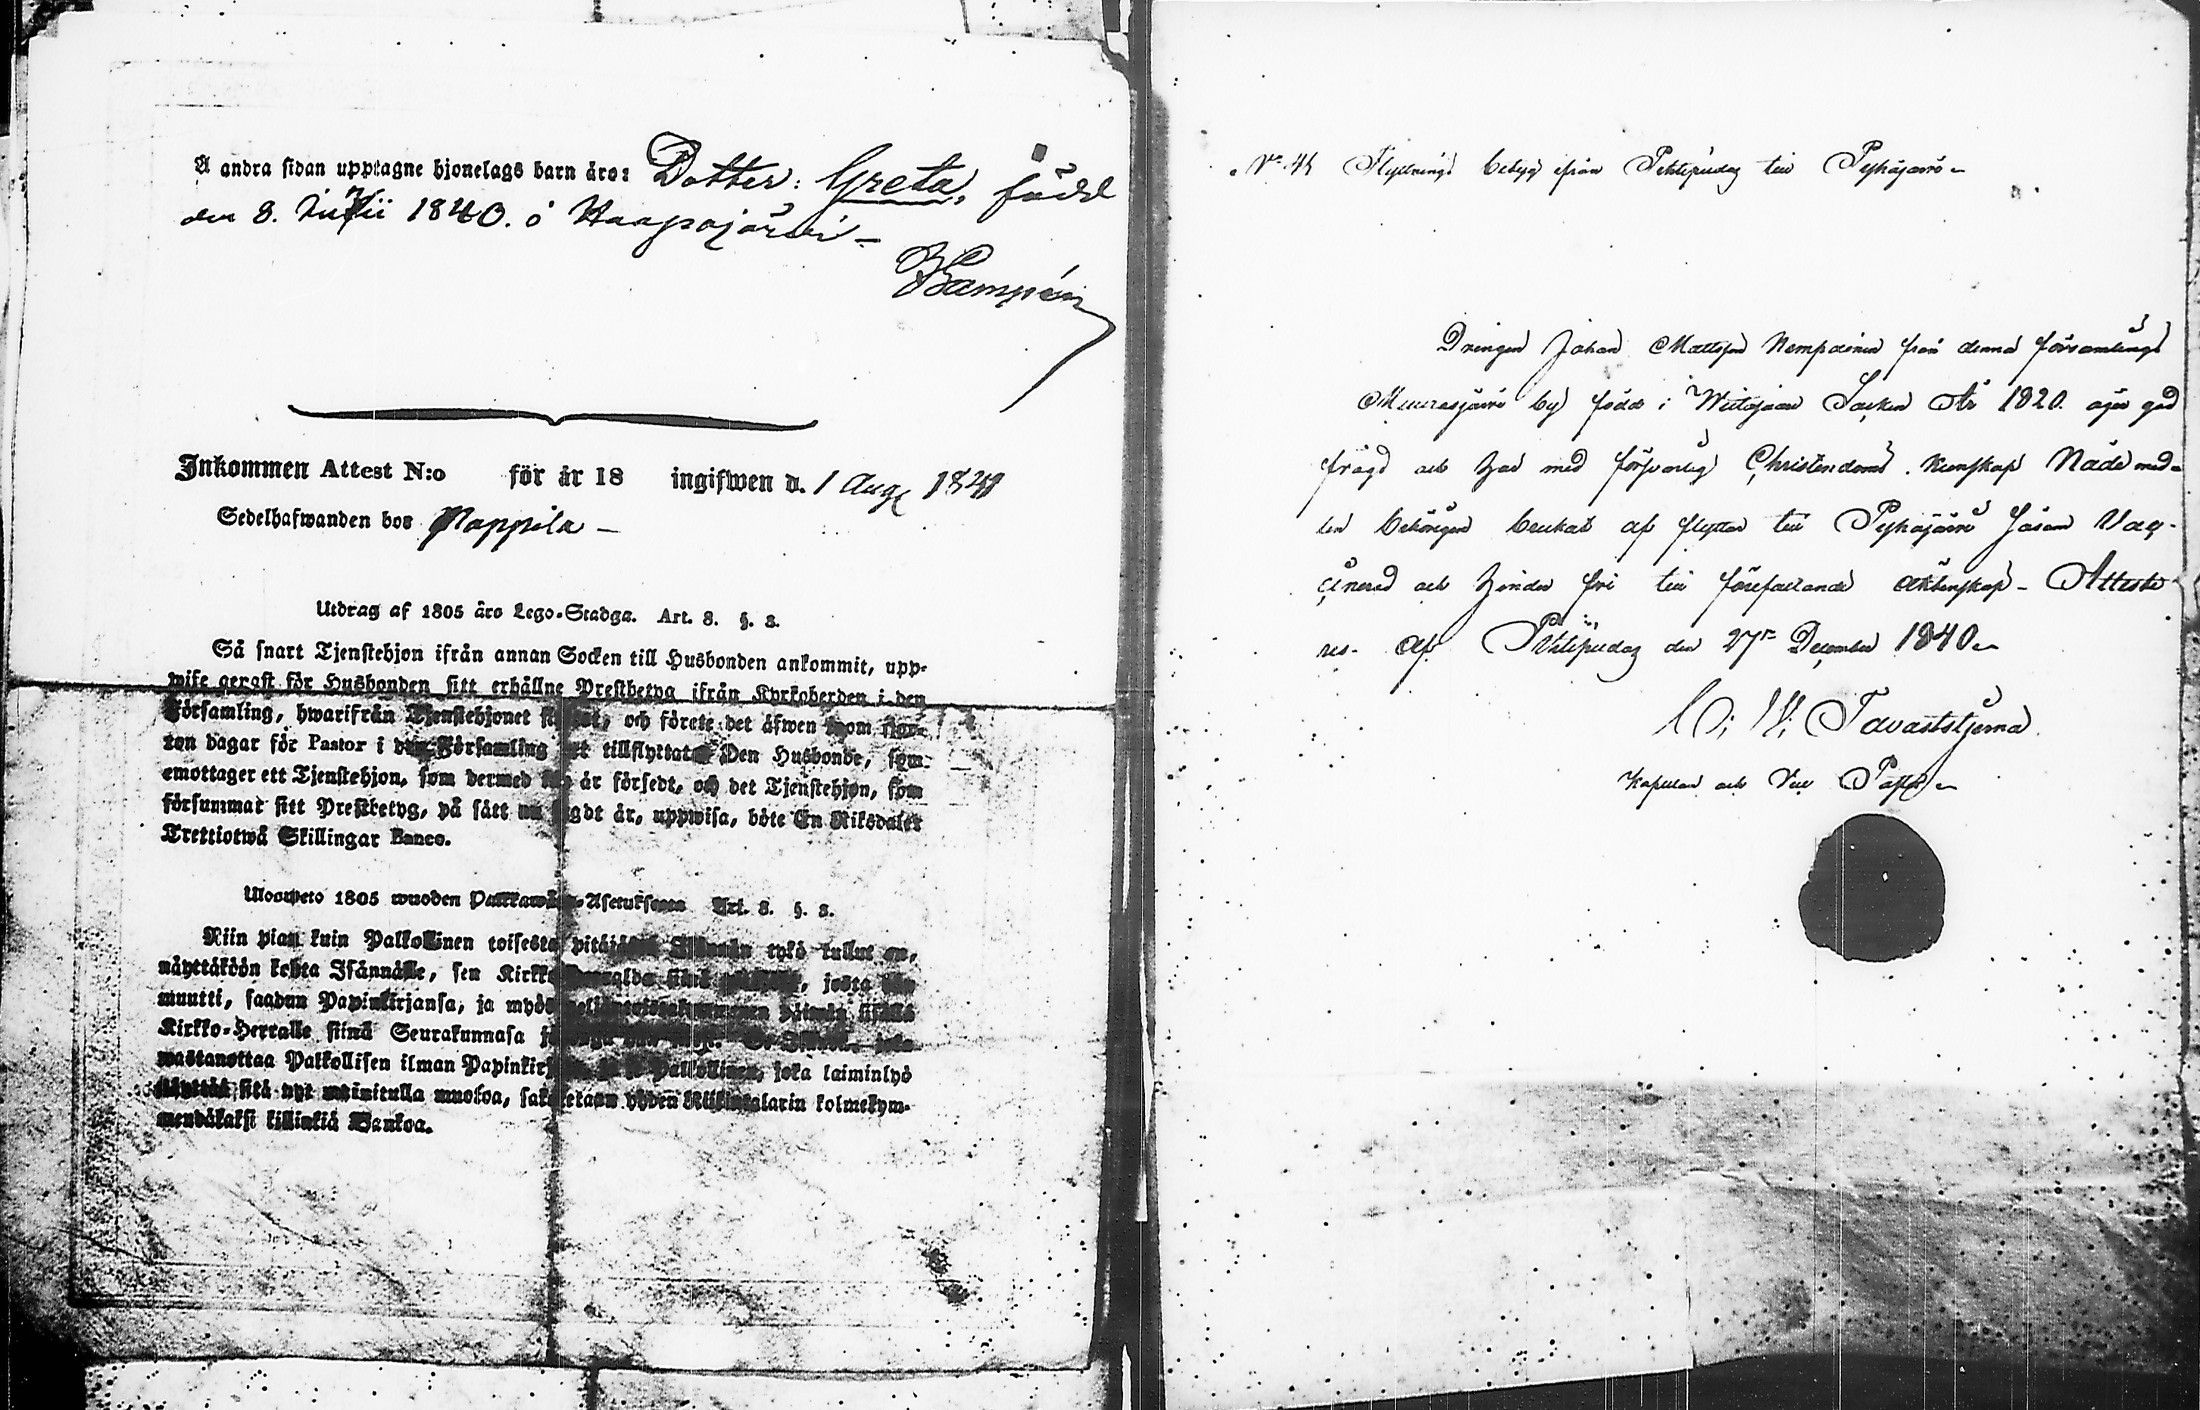 Å andra sidan upptagne hjonelags barn äro: Dotter: Greta, född
den 8. Junii 1840. i Haapajärvi –
Inkommen Attest N:o för år 18 ingifwen d. 1 Aug 1841
Sedelhafwanden bor Pappila –
Utdrag af 1805 års Lego-Stadga. Art. 8. §. 3.
Så snart Tjenstehjon ifrån annan Socken till Husbonden ankommit, upp-
wise genast för Husbonden sitt erhållne Prestbetyg ifrån Kyrkoherden i den
Församling, hwarifrån Tjenstehjonet och förete det äfwen inom fjor-
ton dagar för Pastor i den Församling det tillflyttat. Den Husbonde, som
emottager ett Tjenstehjon, som dermed är försedt, och det Tjenstehjon, som
försummar sitt Prestbetyg, på sätt nu sagdt är, uppwisa, böte En Riksdaler
Trettiotwå Skillingar Banco.
Ulosweto 1805 wuoden Palkkawäen-Asetuksesta Art. 8. §. 3.
Niin pian kuin Palkollinen toisesta pitäjästä Isännän tykö tullut on,
näyttäköön kohta Isännälle, sen Kirkko josta
muutti, saadun Papinkirjansa, ja myös sisällä
Kirkko-Herralle siinä Seurakunnasa
wastanottaa Palkollisen ilman Papinkirjata Palkollinen, joka laiminlyö
näyttää sitä nyt mainitulla muotoa, sakoitetaan yhden Riikintalarin kolmekym-
mendäkaksi killinkiä Bankoa.
N:o 45 Flyttnings betyg ifrån Pihtipudas till Pyhäjärvi –
Drengen Johan Mattsson Kemppainen från denna församlings
Muurasjärvi by född i Wiitasaari Socken År 1820. äger god
frägd och har med försvarlig Christendoms kunskap Nådemed-
len behörigen brukat af flyttar till Pyhäjärvi såsom Vac-
cinerad och hinder fri till förefallande äktenskap – Atteste-
res af Pihtipudas den 27de December 1840 –
Tavaststjerna
Kapellan och Vice Pastor –